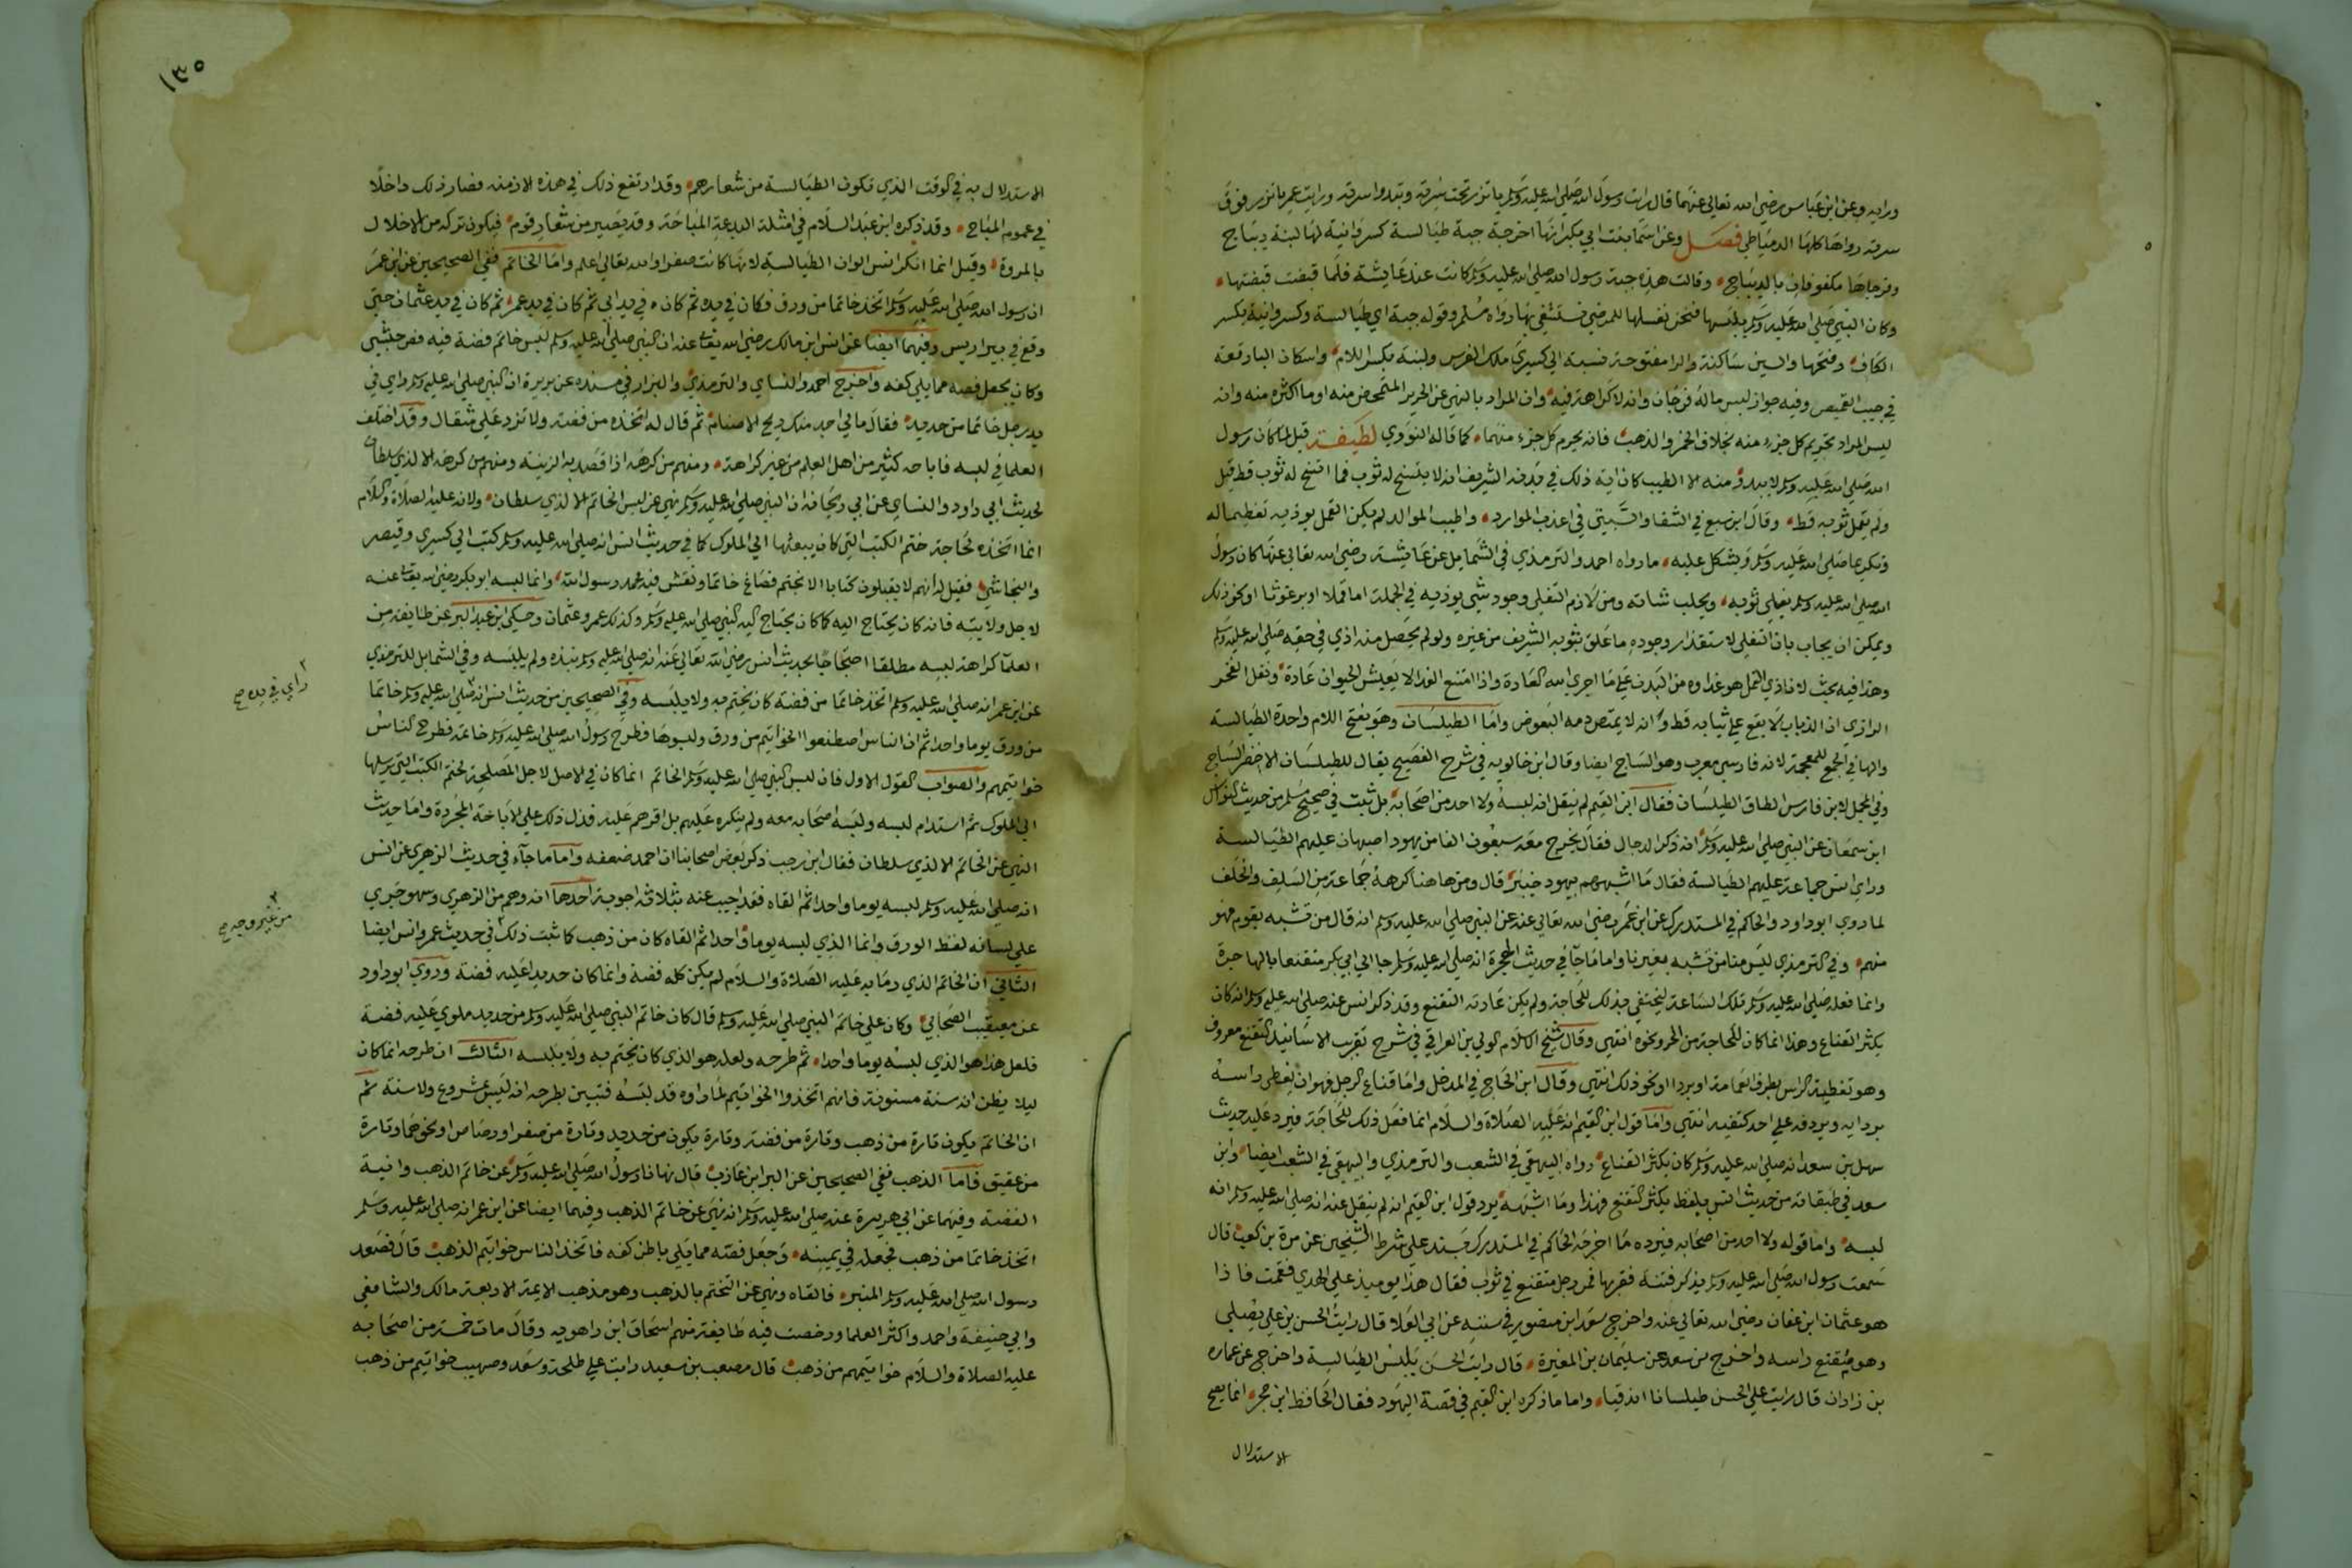 ورايه وعن ابن عباس رضي الله تعالى عنهما قال رايت رسول الله صلى الله عليه وسلم ياتزر تحت سرته وتبدو سرته ورايت عمر ياتزر فوق
سرته رواها كلها الدمياطي فصل وعن اسما بنت ابي بكر انها اخرجت جبة طيالسة كسروانية لها لبنة ديباج
وفرجاها مكفوفان بالديباج وقالت هذه جبة رسول الله صلى الله عليه وسلم كانت عند عايشة فلما قبضت قبضتها
وكان النبي صلى الله عليه وسلم يلبسها فنحن نغسلها للمرضى نستشفي بها رواه مسلم وقوله جبة اي طيالسة وكسروانية بكسر
الكاف وفتحها والسين ساكنة والرا مفتوحة نسبة الى كسرى ملك الفرس ولبنة بكسر اللام واسكان البا رقعة
في جيب القميص وفيه جواز لبس ماله فرجان وانه لا كراهة فيه وان المراد بالنهي عن الحرير المتمحض منه او ما اكثره منه وانه
ليس المراد تحريم كل جزء منه بخلاف الخمر والذهب فانه يحرم كل جزء منهما كما قاله النووي لطيفة قيل لما كان رسول
الله صلى الله عليه وسلم لا يبدو منه الا الطيب كان اية ذلك في بدنه الشريف انه لا يتسخ له ثوب فما اتسخ له ثوب قط قيل
ولم يقمل ثوبه قط وقال ابن سبع في الشفا والسبتي في اعذب الموارد واطيب الموالد لم يكن القمل يوذيه تعظيما له
وتكريما صلى الله عليه وسلم ويشكل عليه ما رواه احمد والترمذي في الشمايل عن عايشة رضي الله تعالى عنها كان رسول
الله صلى الله عليه وسلم يفلي ثوبه ويحلب شاته ومن لازم التفلي وجود شي يوذيه في الجملة اما قملا او برغوثا او نحو ذلك
ويمكن ان يجاب بان التفلي لاستقذار وجوده ما علق بثوبه الشريف من غيره ولو لم يحصل منه اذى في حقه صلى الله عليه وسلم
وهذا فيه بحث لان اذى القمل هو غذاوه من البدن على ما اجرى الله العادة واذا امتنع الغذا لا يعيش الحيوان عادة ونقل الفخر
الرازي ان الذباب لا يقع على ثيابه قط وانه لا يمتص دمه البعوض واما الطيلسان وهو بفتح اللام واحدة الطيالسة
والها في الجمع للعجمة لانه فارسي معرب وهو الساج ايضا وقال ابن خالويه في شرح الفصيح يقال للطيلسان الاخضر الساج
وفي المجمل لابن فارس الطاق الطيلسان فقال ابن القيم لم ينقل انه لبسه ولا احد من اصحابه بل ثبت في صحيح مسلم من حديث النواس
ابن سمعان عن النبي صلى الله عليه وسلم انه ذكر الدجال فقال يخرج معه سبعون الفا من يهود اصبهان عليهم الطيالسة
وراى انس جماعة عليهم الطيالسة فقال ما اشبههم بيهود خيبر قال ومن ها هنا كرهه جماعة من السلف والخلف
لما روى ابو داود والحاكم في المستدرك عن ابن عمر رضي الله تعالى عنه عن النبي صلى الله عليه وسلم انه قال من تشبه بقوم فهو
منهم وفي الترمذي ليس منا من تشبه بغيرنا واما ما جآ في حديث الهجرة انه صلى الله عليه وسلم جا الى ابي بكر متقنعا بالهاجرة
وانما فعله صلى الله عليه وسلم تلك الساعة ليختفي بذلك للحاجة ولم يكن عادته التقنع وقد ذكر انس عنه صلى الله عليه وسلم انه كان
يكثر القناع وهذا انما كان للحاجة من الحر ونحوه انتهى وقال شيخ الاسلام الولي بن العراقي في شرح تقريب الاسانيد التقنع معروف
وهو تغطية الراس بطرف العمامة او بردا او نحو ذلك انتهى وقال ابن الحاج في المدخل واما قناع الرجل فهو ان يغطي راسه
بردايه ويرد فه على احد كتفيه انتهى واما قول ابن القيم انه عليه الصلاة والسلام انما فعل ذلك للحاجة فيرد عليه حديث
سهل بن سعد انه صلى الله عليه وسلم كان يكثر القناع رواه البيهقي في الشعب والترمذي والبيهقي في الشعب ايضا وابن
سعد في طبقاته من حديث انس بلفظ يكثر التقنع فهذا وما اشبهه يرد قول ابن القيم انه لم ينقل عنه انه صلى الله عليه وسلم انه
لبسه واما قوله ولا احد من اصحابه فيرده ما اخرجه الحاكم في المستدرك بسند على شرط الشيخين عن مرة بن كعب قال
سمعت رسول الله صلى الله عليه وسلم يذكر فتنة فقربها فمر رجل متقنع في ثوب فقال هذا يوميذ على الهدى فقمت فاذا
هو عثمان ابن عفان رضي الله تعالى عنه واخرج سعيد ابن منصور في سننه عن ابي العلا قال رايت الحسن بن علي يصلي
وهو متقنع راسه واخرج بن سعد عن سليمان بن المغيرة قال رايت الحسن يلبس الطيالسة واخرج عن عماره
بن زاذان قال رايت على الحسن طيلسانا اندقيا واما ما ذكره ابن القيم في قصة اليهود فقال الحافظ ابن حجر انما يصح
الاستدلال
١٣٥
الاستدلال به في الوقت الذي تكون الطيالسة من شعارهم وقد ارتفع ذلك في هذه الازمنه فصار ذلك داخلا
في عموم المباح وقد ذكره ابن عبد السلام في امثلة البدعة المباحة وقد يصير من شعار قوم فيكون تركه من الاخلال
بالمروة وقيل انما انكر انس الوان الطيالسة لانها كانت صفرا والله تعالى اعلم واما الخاتم ففي الصحيحين عن ابن عمر
ان رسول الله صلى الله عليه وسلم اتخذ خاتما من ورق فكان في يده ثم كان في يد ابي ثم كان في يد عمر ثم كان في يد عثمان حتى
وقع في بير اريس وفيهما ايضا عن انس ابن مالك رضي الله تعالى عنه ان النبي صلى الله عليه وسلم لبس خاتم فضة فيه فص حبشي
وكان يجعل فصه مما يلي كفه واخرج احمد والنساي والترمذي والبزار في مسنده عن بريرة ان النبي صلى الله عليه وسلم راى في
يد رجل خاتما من حديد فقال مالي اجد منك ريح الاصنام ثم قال له اتخذه من فضة ولا تزد على مثقال وقد اختلف
العلما في لبسه فاباحه كثير من اهل العلم من غير كراهة ومنهم من كرهه اذا قصد به الزينة ومنهم من كرهه الا لذي سلطان
لحديث ابي داود والنساي عن ابي ريحانه ان النبي صلى الله عليه وسلم نهى عن لبس الخاتم الا لذي سلطان ولانه عليه الصلاة والسلام
انما اتخذه لحاجة ختم الكتب التي كان يبعثها الى الملوك كما في حديث انس انه صلى الله عليه وسلم كتب الى كسرى وقيصر
والنجاشي فقيل له انهم لا يقبلون كتابا الا بختم فصاغ خاتما ونقش فيه محمد رسول الله وانما لبسه ابو بكر رضي الله تعالى عنه
لاجل ولايته فانه كان يحتاج اليه كما كان يحتاج اليه النبي صلى الله عليه وسلم وكذلك عمر وعثمان وحكى ابن عبد البر عن طايفة من
العلمآ كراهة لبسه مطلقا احتجاجا بحديث انس رضي الله تعالى عنه انه صلى الله عليه وسلم نبذه ولم يلبسه وفي الشمايل للترمذي
عن ابن عمر انه صلى الله عليه وسلم اتخذ خاتما من فضة كان يختم به ولا يلبسه وفي الصحيحين من حديث انس انه صلى الله عليه وسلم خاتما
راى في يده صح
من ورق يوما واحدا ثم ان الناس اصطنعوا الخواتيم من ورق ولبسوها فطرح رسول الله صلى الله عليه وسلم خاتمه فطرح الناس
خواتيمهم والصواب القول الاول فان لبس النبي صلى الله عليه وسلم الخاتم انما كان في الاصل لاجل المصلحة لختم الكتب التي يرسلها
الى الملوك ثم استدام لبسه ولبسه اصحابه معه ولم ينكره عليهم بل اقرهم عليه فدل ذلك على الاباحة المجردة واما حديث
النهي عن الخاتم الا لذي سلطان فقال ابن رجب ذكر بعض اصحابنا ان احمد ضعفه واما ما جآء في حديث الزهري عن انس
انه صلى الله عليه وسلم لبسه يوما واحدا ثم القاه فقد اجيب عنه بثلاثة اجوبة احدها انه وهم من الزهري وسهو جرى
على لسانه لفظ الورق وانما الذي لبسه يوما واحدا ثم القاه كان من ذهب كما ثبت ذلك في حديث عمر وانس ايضا
من غير وجه صح
الثاني ان الخاتم الذي رما به عليه الصلاة والسلام لم يكن كله فضة وانما كان حديدا عليه فضة وروى ابو داود
عن معيقيب الصحابي وكان على خاتم النبي صلى الله عليه وسلم قال كان خاتم النبي صلى الله عليه وسلم من حديد ملوي عليه فضة
فلعل هذا هو الذي لبسه يوما واحدا ثم طرحه ولعله هو الذي كان يختم به ولا يلبسه الثالث ان طرحه انما كان
ليلا يظن انه سنة مسنونة فانهم اتخذوا الخواتيم لما راوه قد لبسه فتبين بطرحه انه ليس بمشروع ولا سنة ثم
ان الخاتم يكون تارة من ذهب وتارة من فضة وتارة يكون من حديد وتارة من صفر او رصاص او نحوهما وتارة
من عقيق فاما الذهب ففي الصحيحين عن البرا ابن عازب قال نهانا رسول الله صلى الله عليه وسلم عن خاتم الذهب وانية
الفضة وفيهما عن ابي هريرة عنه صلى الله عليه وسلم انه نهى عن خاتم الذهب وفيهما ايضا عن ابن عمر انه صلى الله عليه وسلم
اتخذ خاتما من ذهب فجعله في يمينه وجعل فصه مما يلي باطن كفه فاتخذ الناس خواتيم الذهب قال فصعد
رسول الله صلى الله عليه وسلم المنبر فالقاه ونهى عن التختم بالذهب وهو مذهب الايمة الاربعة مالك والشافعي
وابي حنيفة واحمد واكثر العلما ورخصت فيه طايفة منهم اسحاق ابن راهويه وقال مات خمسة من اصحابه
عليه الصلاة والسلام خواتيمهم من ذهب قال مصعب بن سعيد رايت على طلحة وسعد وصهيب خواتيم من ذهب